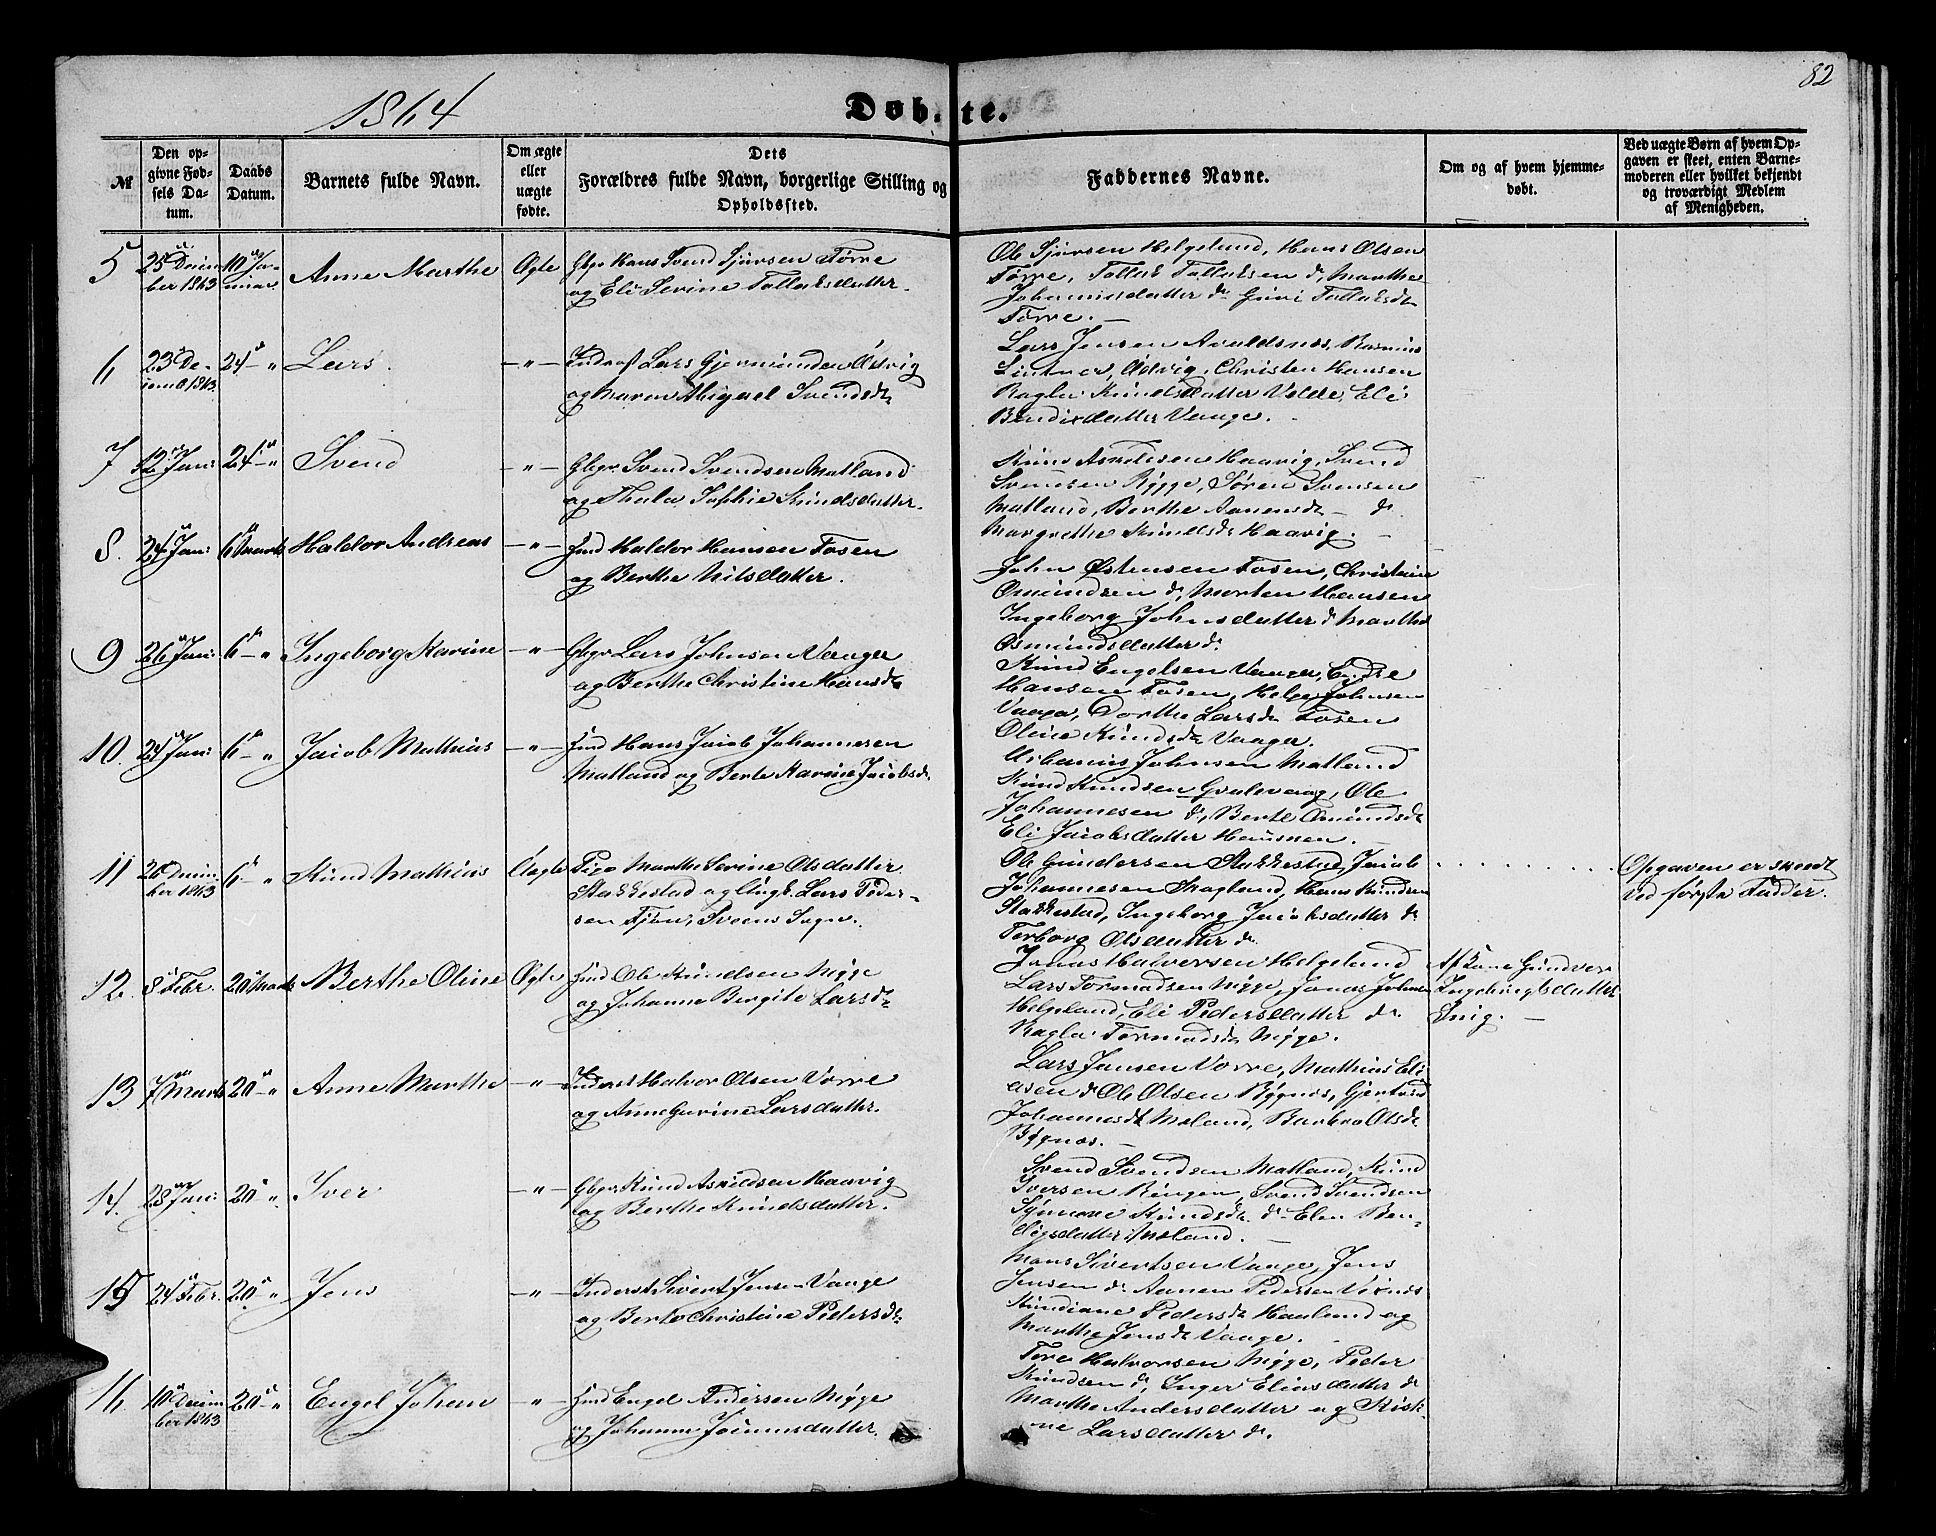 1864
Döbte.
82
№
Den op-
givne Fød-
sels Da-
tum.
Daabs
Datum.
Barnets fulde Navn.
Om ægte
eller
uægte
fødte.
Dets
Forældres fulde Navn, borgerlige Stilling og
Opholdssted.
Faddernes Navne.
Om og af hvem hjemme-
døbt.
Ved uægte Børn af hvem Op-
gaven er skeet, enten Barne-
moderen eller hvilket bekjendt
og troværdigt Medlem
af Menigheden.
5
25 Decem
ber 1863
10 Ja-
nuar
Anne Marthe
Ægte
Gbgr Hans Svend Sjursen Førre
og Eli Sevine Tollaksdatter.
Ole Sjursen Helgeland, Hans Olsen
Førre, Tollak Tollaksen do, Marthe
Johannisdatter do Guri Tollaksdt
Førre. —
6
23 De-
cemb 1863
24 - "
Lars
- " -
Inderst Lars Gjermundsen Østvig
og Maren Abigael Svendsdt
Lars Jensen Avaldsnes, Rasmus
Østvig, Christen Hansen
Ragla Knudsdatter Velde, Eli
Bendixdatter Vaage. -
7
12 Jan:
24 - "
Svend
- " -
Gbgr. Svend Svendsen Matland
og Thala Sophie Knudsdatter.
Knud Asseldsen Haavig, Svend
Svensen Rygge, Søren Svensen
Matland, Berthe Aanensdt - do.
Margrethe Knudsdt Haavig. -
8.
24 Jan:
6 Marts
Haldor Andreas
- " -
Hmd Haldor Hansen Fosen
og Berthe Nilsdatter.
John Østensen Fosen, Christine
Omundsen do, Morten Hansen
Ingeborg Johnsdatter do Marthe
Osmundsdatter do
9
26 Jan:
6 - "
Ingeborg Karine
- " -
Gbgr Lars Johnsen Vaage
og Berthe Christine Hansdt
Knud Engelsen Vaage, Endre
Hansen Fosen, Helge Johnsen
Vaage, Dorthe Larsdt Fosen
Oline Knudsdt Vaage.
10.
24 Jan:
6 - "
Jacob Mathias
- " -
Hmd Hans Jacob Johannesen
Matland og Berte Karine Jacobsdt.
Urbanius Johnsen Matland
Knud Knudsen Gvalevaag, Ole
Johannesen do, Berte Omundsdt
Eli Jacobsdatter Hemnen.
11
26 Decem
ber 1863
6 - "
Knud Mathias
Uægte
Pige Marthe Sevine Olsdatter
Stakkestad og Ungk. Lars Peder-
sen Tjøn, Sveens Sogn.
Ole Gundersen Stakkestad, Jacob
Johannesen Skagland, Hans Knudsen
Stakkestad, Ingeborg Jacobsdatter do
Torborg Olsdatter do
Opgaven er skeedt
ved første Fadder.
12.
8 Febr.
20 Marts
Berthe Oline
Ægte
Hmd Ole Knudsen Nygge
og Johanne Bergite Larsdt
Jonas Halversen Helgeland
Lars Tormodsen Nygge, Jonas Johnsen
Helgeland, Eli Pedersdatter do.
Ragla Tormodsdt Nygge.
Af Kone Gunvor
Ingebrigtsdatter
Snig. -
13
7 Marts
20 - "
Anne Marthe
- " -
Inderst Halvor Olsen Vorre
og Anne Gurine Larsdatter.
Lars Jansen Vorre, Mathias Eli
asen do Ole Olsen Bygnes, Gjertrud
Johannesdt Meland, Barbra Olsdt
Bygnæs. -
14.
28 Jan:
20 - "
Iver
- " -
Gbgr Knud Asseldsen Haavig
og Berthe Knudsdatter.
Svend Svendsen Matland, Knud
Iversen Ringen, Svend Svendsen
Synneve Knudsdt. do Elen Ben-
digsdatter Meland. -
15
24 Febr.
20 - "
Jens
- " -
Inderst Sivert Jensen Vaage
og Berte Christine Pedersdt
Mons Sivertsen Vaage, Jens
Jensen do Aanen Pedersen Vixnes
Kundiane Pedersdt Haaland og
Marthe Jensdt Vaage. -
16.
10 Decem
ber 1863
20 - "
Engel Johan
- " -
Hmd Engel Andersen Nygge
og Johanne Joimmsdatter.
Tore Halvorsen Nygge, Peder
Knudsen do, Inger Eliasdatter do
Marthe Andersdatter og Kisk-
ne Larsdatter do.